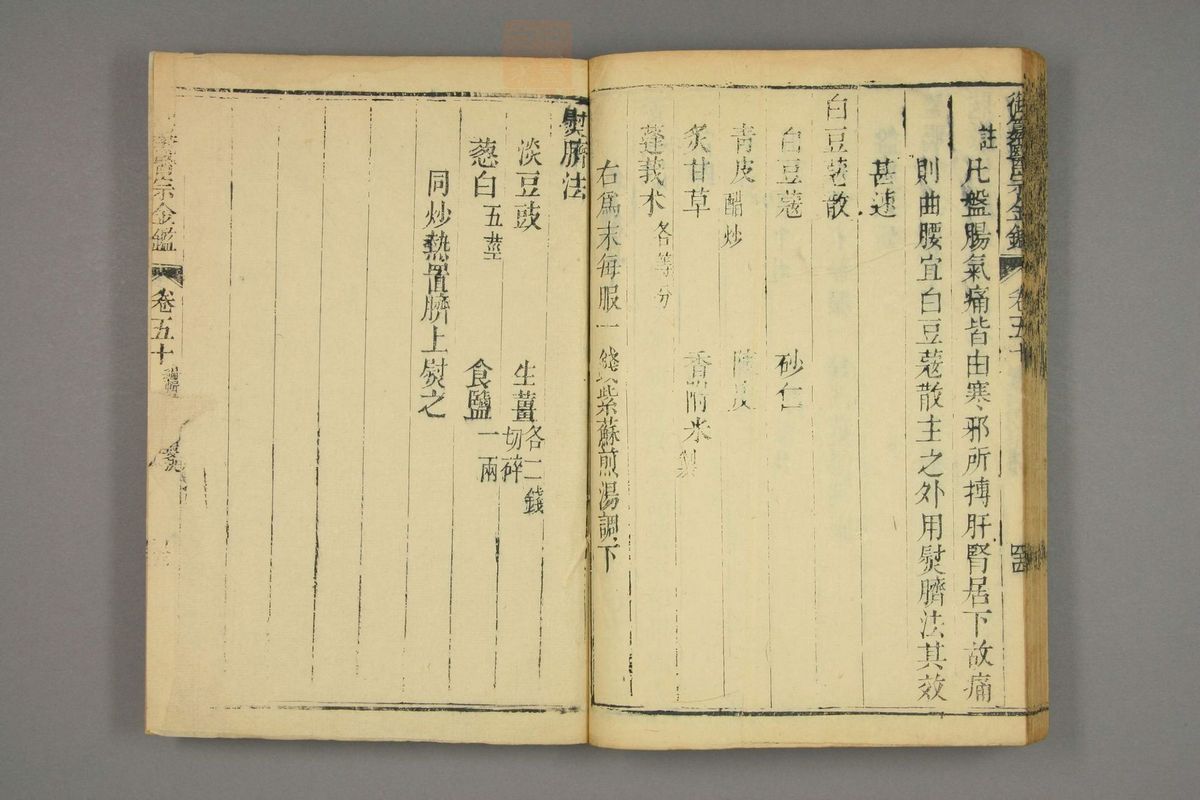 御纂醫宗金鑑
卷五十
註凡盤腸氣痛皆由寒邪所搏肝腎居下故痛
則曲腰宜白豆蔻散主之外用熨臍法其效
甚速
白豆蔻散
白豆蔻 砂仁
青皮醋炒 陳皮
炙甘草 香附米製
蓬莪朮各等分
右爲末每服一錢紫蘇煎湯調下
熨臍法
淡豆豉 生薑切碎各二錢
葱白五莖 食鹽一兩
同炒熱置臍上熨之
醫宗金鑑
卷五十